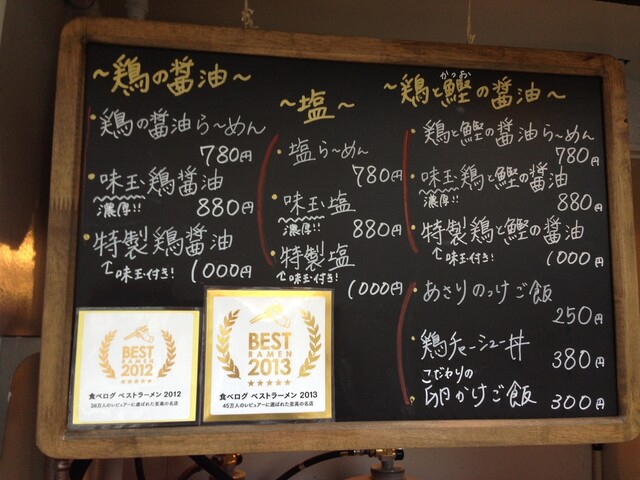 ～鶏の醤油～
・鶏の醤油ら～めん
780円
・味玉鶏醤油
濃厚!!
880円
・特製鶏醤油
↑味玉付き!
1000円
～塩～
・塩ら～めん
780円
・味玉塩
濃厚!!
880円
・特製塩
↑味玉付き!
1000円
かつお
～鶏と鰹の醤油～
・鶏と鰹の醤油ら～めん
780円
・味玉鶏と鰹の醤油
濃厚!!
880円
・特製鶏と鰹の醤油
↑味玉付き!
1000円
・あさりのっけご飯
250円
・鶏チャーシュー丼
380円
こだわりの
・卵かけご飯
300円
BEST
RAMEN
2012
食べログ ベストラーメン 2012
38万人のレビュアーに選ばれた至高の名店
BEST
RAMEN
2013
食べログ ベストラーメン 2013
45万人のレビュアーに選ばれた至高の名店